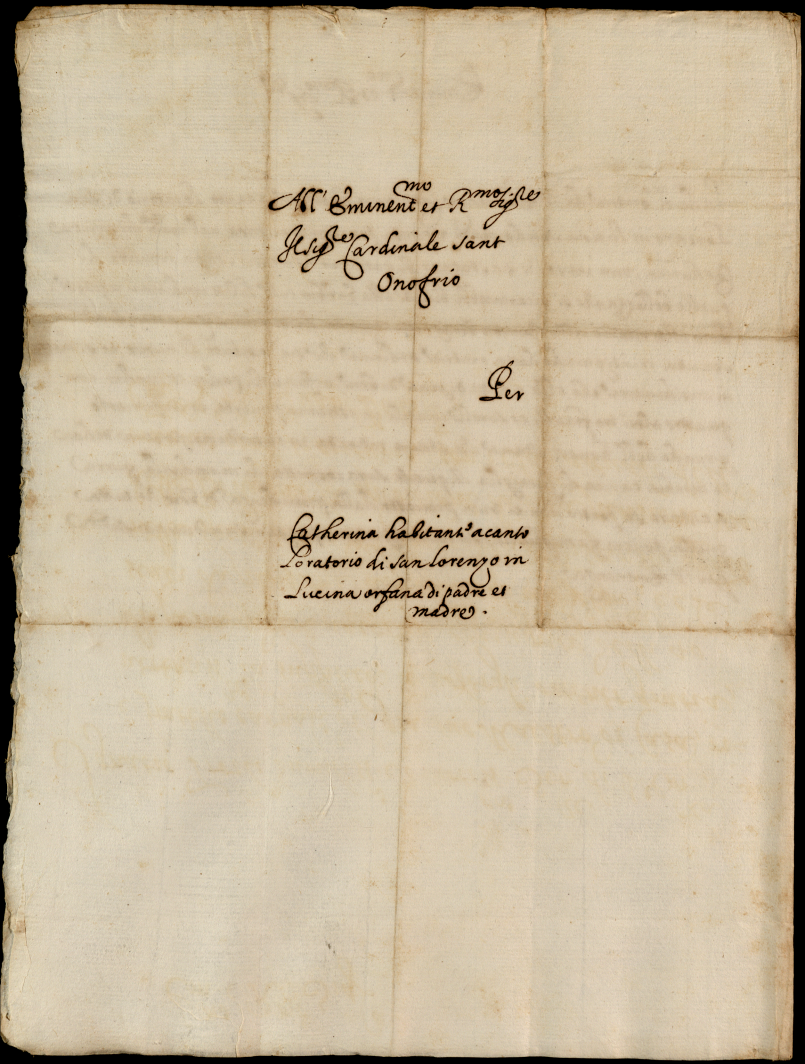 All' Eminent.mo et R.mo Sig.re
Il Sig.re Cardinale sant
Onofrio
Per
Catherina habitante acanto
L'oratorio di san Lorenzo in
Lucina orfana di padre et
madre.